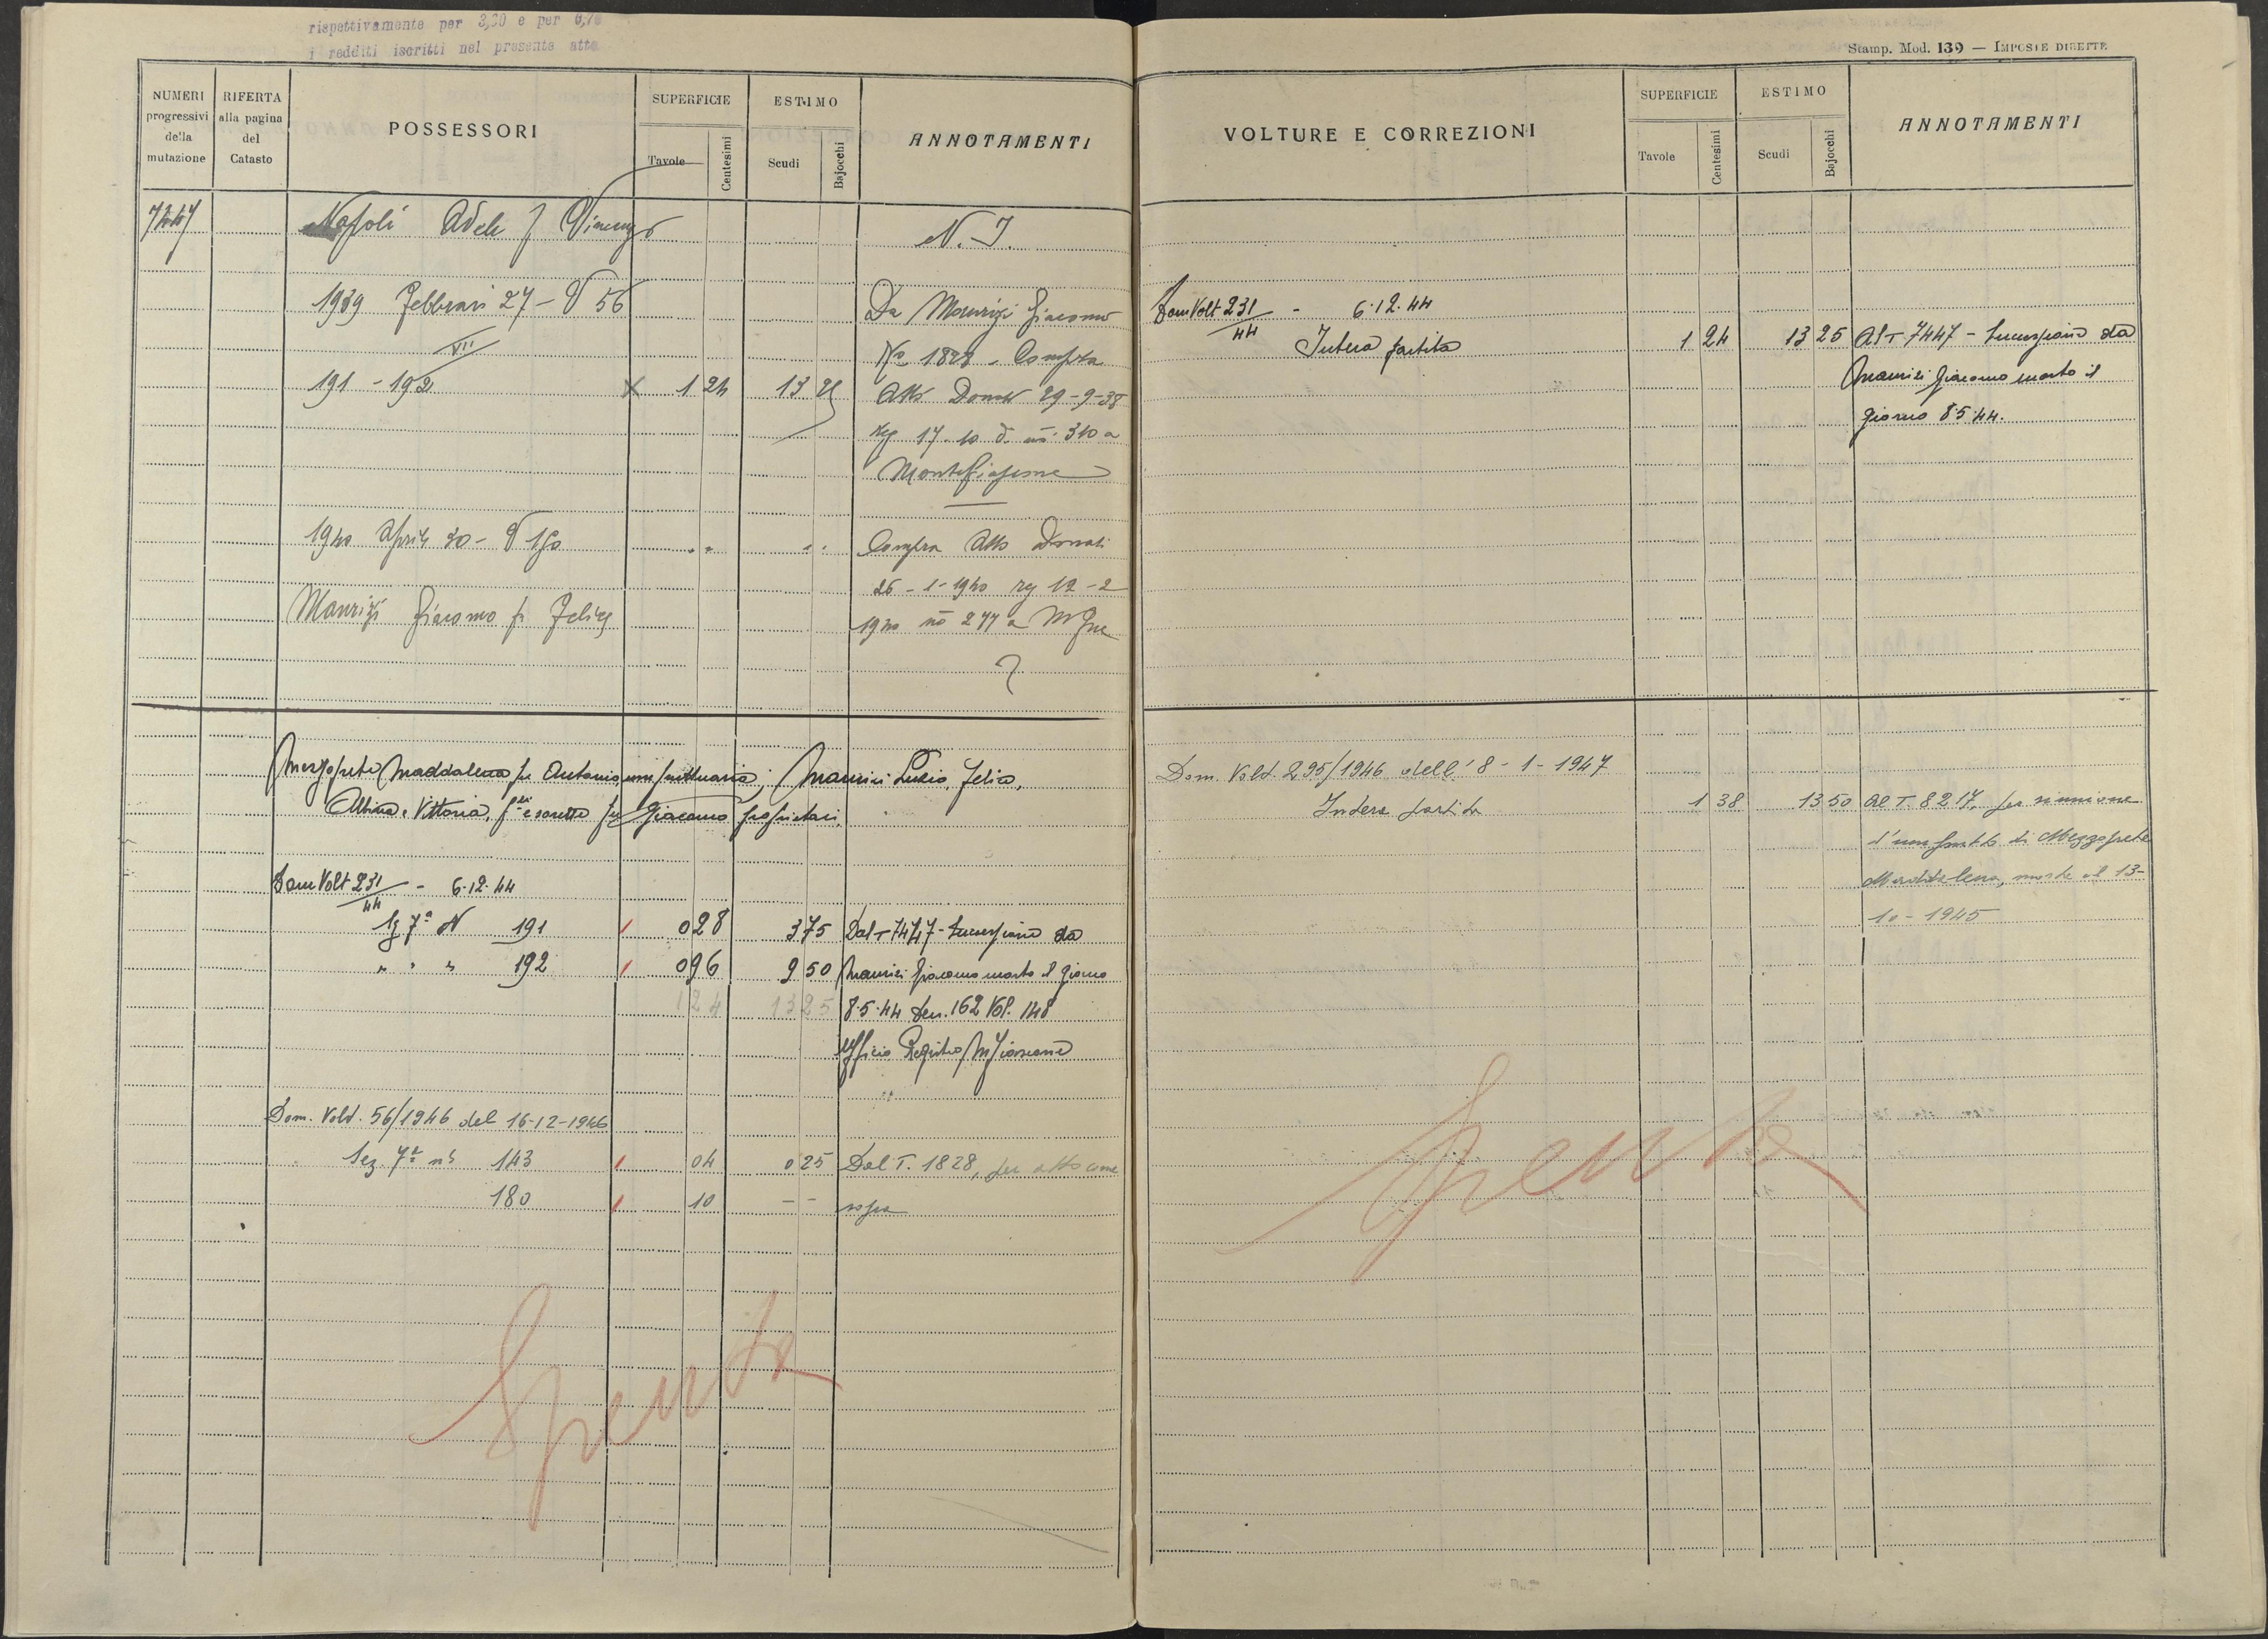 rispettivamente per 3,30 e per 6,70
i redditi iscritti nel presente atto
Stamp. Mod. 139 — IMPOSTE DIRETTE
NUMERI progressivi della mutazione
RIFERTA alla pagina del Catasto
POSSESSORI
SUPERFICIE
Tavole
Centesimi
ESTIMO
Scudi
Bajocchi
ANNOTAMENTI
7447
Napoli Adele f Vincenzo
N. I.
1939 Febbraio 27 - V 56
Da Maurizi Giacomo
VII
No 1828 - Compra
191 - 192 X 1 24 13 25
Atto Donati 29-9-38
reg 17-10 d. no 310 a
Montefiascone
1940 Aprile 30 - V 150 " " " "
Compra Atto Donati
26-1-1940 reg 12-2
Maurizi Giacomo fu Felice
1940 no 277 a Mfne
Mezzoprete Maddalena fu Antonio, usufruttuaria; Maurizi Lucia, Felice,
Albina e Vittoria, f.lli e sorelle fu Giacomo proprietari.
Dom Volt 231/44 - 6.12.44
Sez 7ª N 191 028 375 Dal T 7447 - Successione da
" " " 192 096 950 Maurizi Giacomo morto il giorno
124 1325 8.5.44 Den. 162 Vol. 148
Ufficio Registro Mfiascone
Dom. Volt. 56/1946 del 16-12-1946
Sez 7ª ni 143 04 025 Dal T. 1828, per atto come
180 10 - - sopra
Spenta
VOLTURE E CORREZIONI
SUPERFICIE
Tavole
Centesimi
ESTIMO
Scudi
Bajocchi
ANNOTAMENTI
Dom Volt 231/44 - 6.12.44
Intera partita 1 24 13 25 Al T 7447 - Successione da
Maurizi Giacomo morto il
giorno 8.5.44.
Dom. Volt. 295/1946 dell'8-1-1947
Intera partita 1 38 13 50 Al T. 8217, per riunione
d'usufrutto di Mezzoprete
Maddalena, morta il 13-
10-1945
Spenta